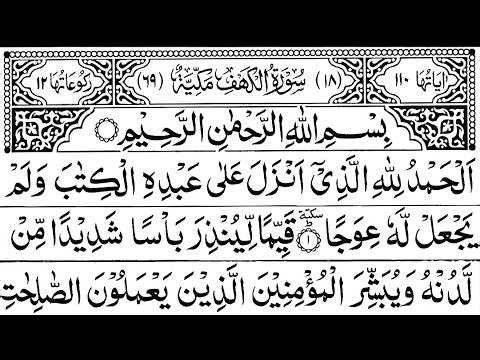 اٰیَاتُهَا ١١٠ (١٨) سُوْرَةُ الْكَهْفِ مَكِّیَّةٌ (٦٩) رُكُوْعَاتُهَا ١٢
بِسْمِ اللّٰهِ الرَّحْمٰنِ الرَّحِیْمِ
اَلْحَمْدُ لِلّٰهِ الَّذِیْۤ اَنْزَلَ عَلٰی عَبْدِهِ الْكِتٰبَ وَلَمْ
یَجْعَلْ لَّهٗ عِوَجًا ۜ ١ قَیِّمًا لِّیُنْذِرَ بَاْسًا شَدِیْدًا مِّنْ
لَّدُنْهُ وَیُبَشِّرَ الْمُؤْمِنِیْنَ الَّذِیْنَ یَعْمَلُوْنَ الصّٰلِحٰتِ